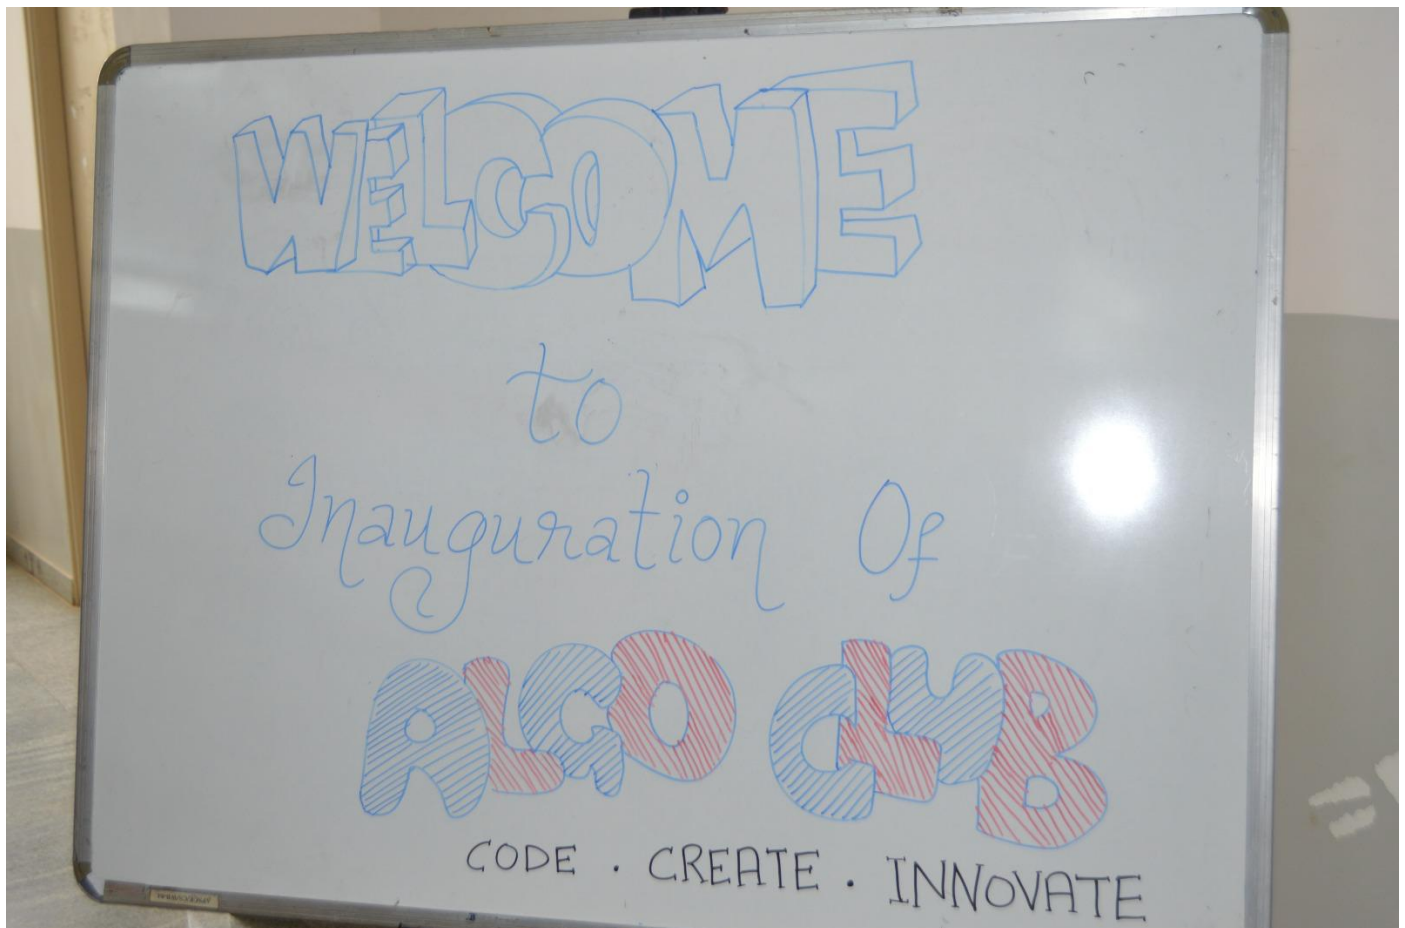 WELCOME
to
Inauguration Of
ALGO CLUB
CODE . CREATE . INNOVATE